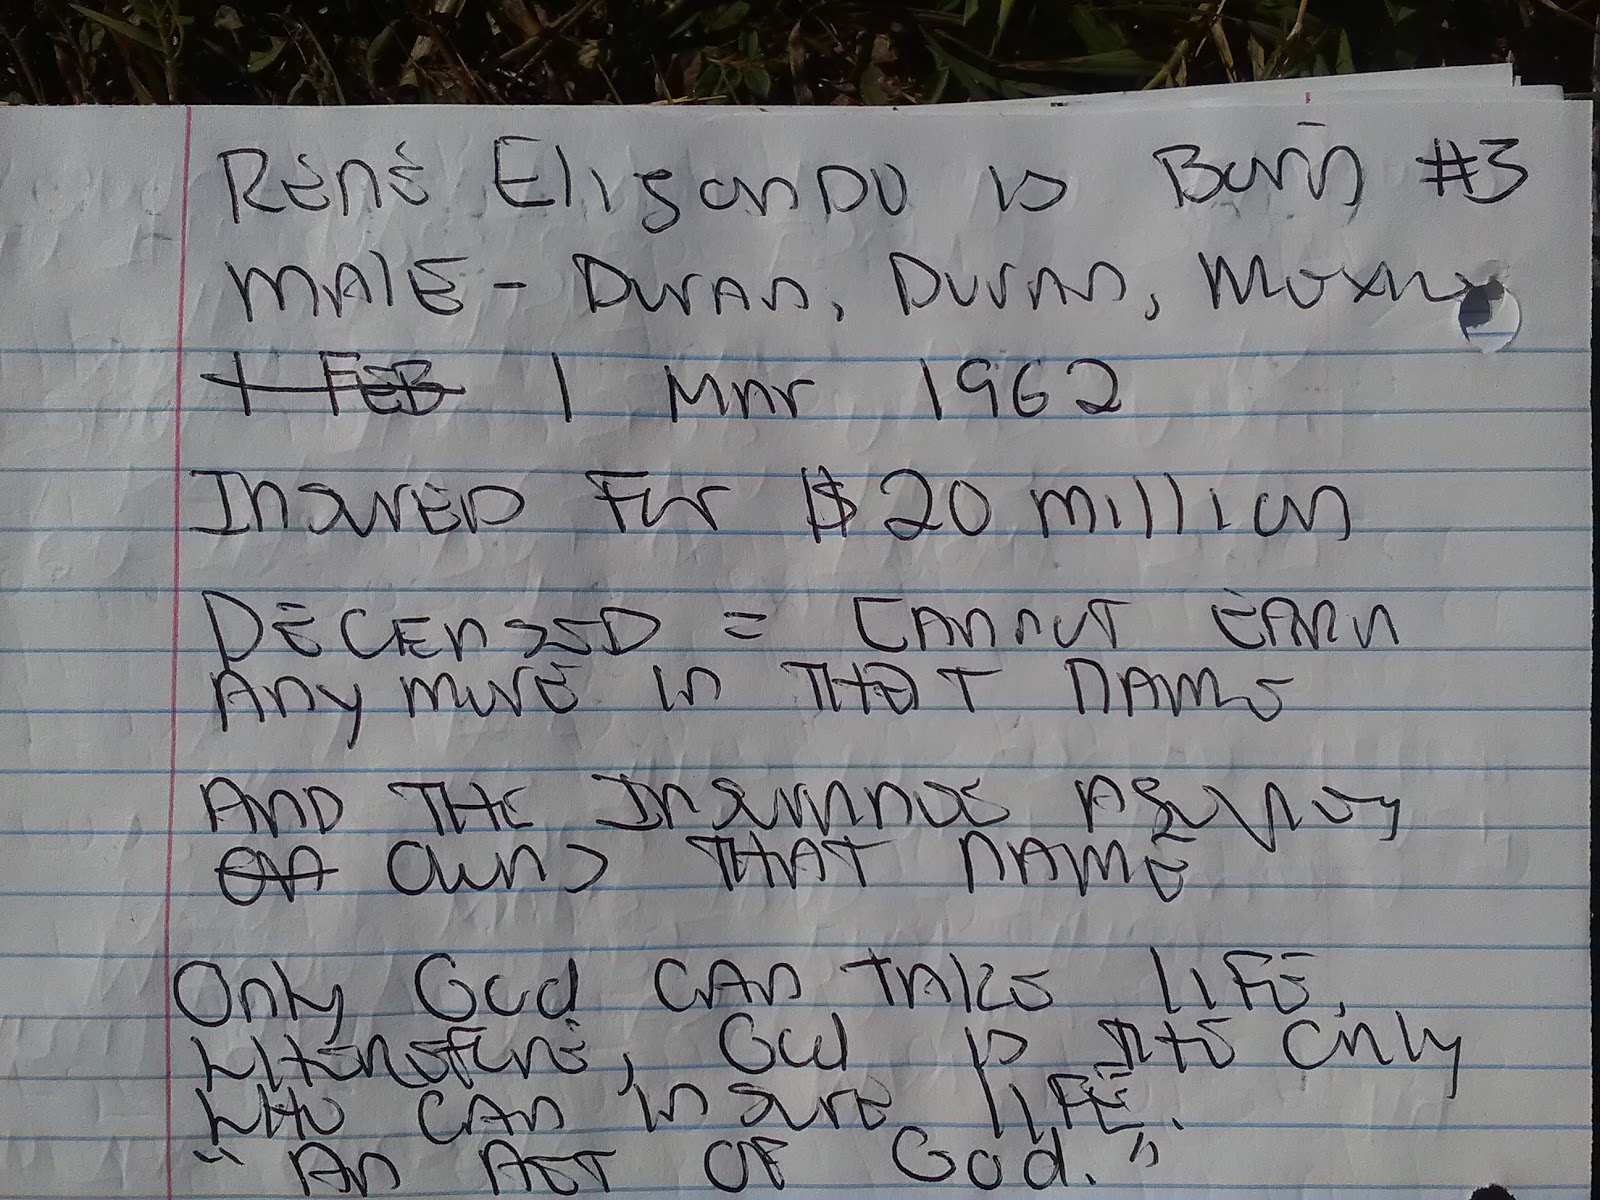 René Elisondo is Born #3
Male - Duran, Duran, Mexico
1 FEB 1 Mar 1962
Insured For $20 million
Deceased = Cannot Earn
Any more in THAT name
And THE Insurance Agency
OA owns THAT NAME
Only God CAN TAKE LIFE.
WHEREFORE, God is THE only
WHO CAN insure LIFE.
"An Act OF God."